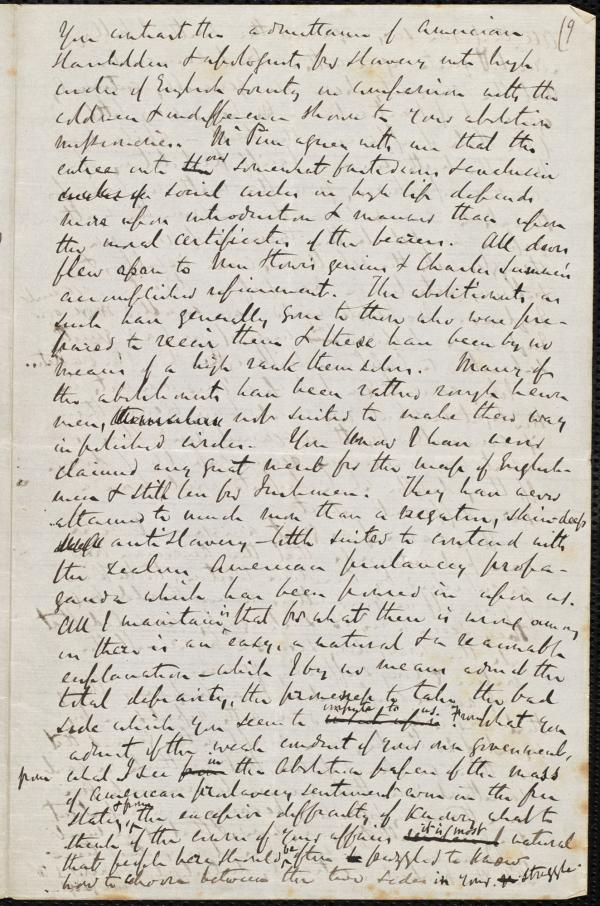 (9
You contrast the admittance of American
slaveholders & apologists for slavery into high
circles of English Society in comparison with the
coldness & indifference shown to your abolition
missionaries. Mr Pim agrees with me that the
entree into our somewhat fastidious & exclusive
social circles in high life depends
more upon introduction & manners than upon
the moral certificates of the bearers. All doors
flew open to Mrs Stowe's genius & Charles Sumner's
accomplished refinement. The abolitionists as
such have generally gone to those who were pre-
pared to receive them & these have been by no
means of a high rank themselves. Many of
the abolitionists have been rather rough hewn
men, not suited to make their way
in polished circles. You know I have never
claimed any great merit for the mass of English-
men & still less for Irishmen. They have never
attained to much more than a negative, skin-deep
antislavery - little suited to contend with
the zealous American proslavery propa-
ganda which has been poured in upon us.
All I maintain is that for what there is wrong among
us there is an easy, a natural & a reasonable
explanation - which I by no means admit the
total depravity, the proneness to take the bad
side which you seem to impute to us. From what you
admit of the weak conduct of your own government,
from what I see in the Abolition papers of the mass
of American proslavery sentiment even in the free
States, & from the excessive difficulty of knowing what to
think of the course of your affairs it is most natural
that people here should be often puzzled to know
how to choose between the two sides in your struggle.